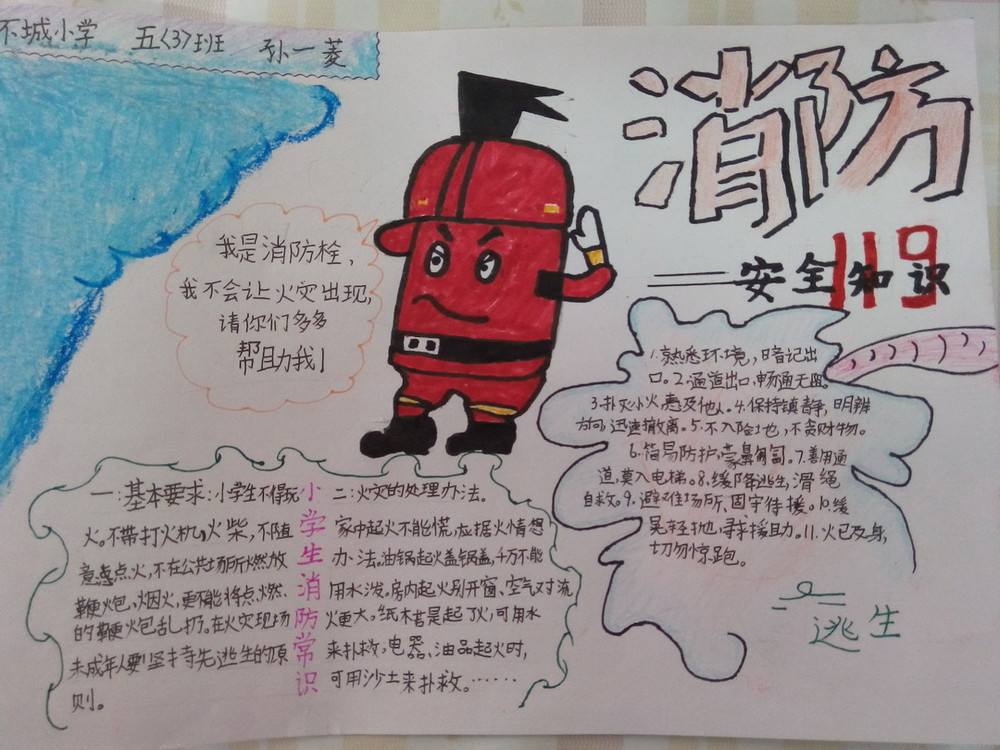 不城小学 五〈3〉班 孙一菱
消防
119
安全知识
我是消防栓，
我不会让火灾出现，
请你们多多
帮助我！
1.熟悉环境，暗记出
口。2.通道出口，畅通无阻。
3.扑灭小火，惠及他人。4.保持镇静，明辨
方向，迅速撤离。5.不入险地，不贪财物。
6.简易防护，蒙鼻匍匐。7.善用通
道，莫入电梯。8.缓降逃生，滑绳
自救。9.避难场所，固守待援。10.缓
晃轻抛，寻求援助。11.火已及身，
切勿惊跑。
逃生
小学生消防常识
一：基本要求：小学生不得玩
火。不带打火机，火柴，不随
意点火，不在公共场所燃放
鞭炮、烟火，更不能将点燃
的鞭炮乱扔。在火灾现场
未成年人要坚持先逃生的原
则。
二：火灾的处理办法。
家中起火不能慌，应据火情想
办法。油锅起火盖锅盖，千万不能
用水泼。房内起火别开窗、空气对流
火更大。纸木若是起了火，可用水
来扑救，电器、油品起火时，
可用沙土来扑救。……